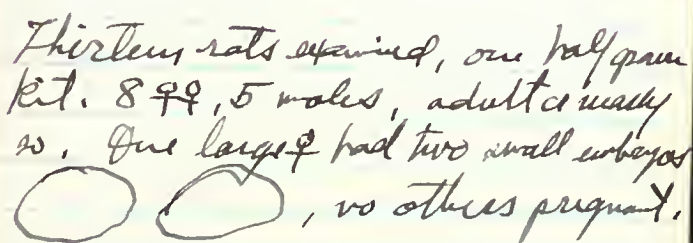 Thirteen rats examined, one half grown
kit. 8 ♀♀, 5 males, adult or nearly
so. One large ♀ had two small embryos
, no others pregnant.